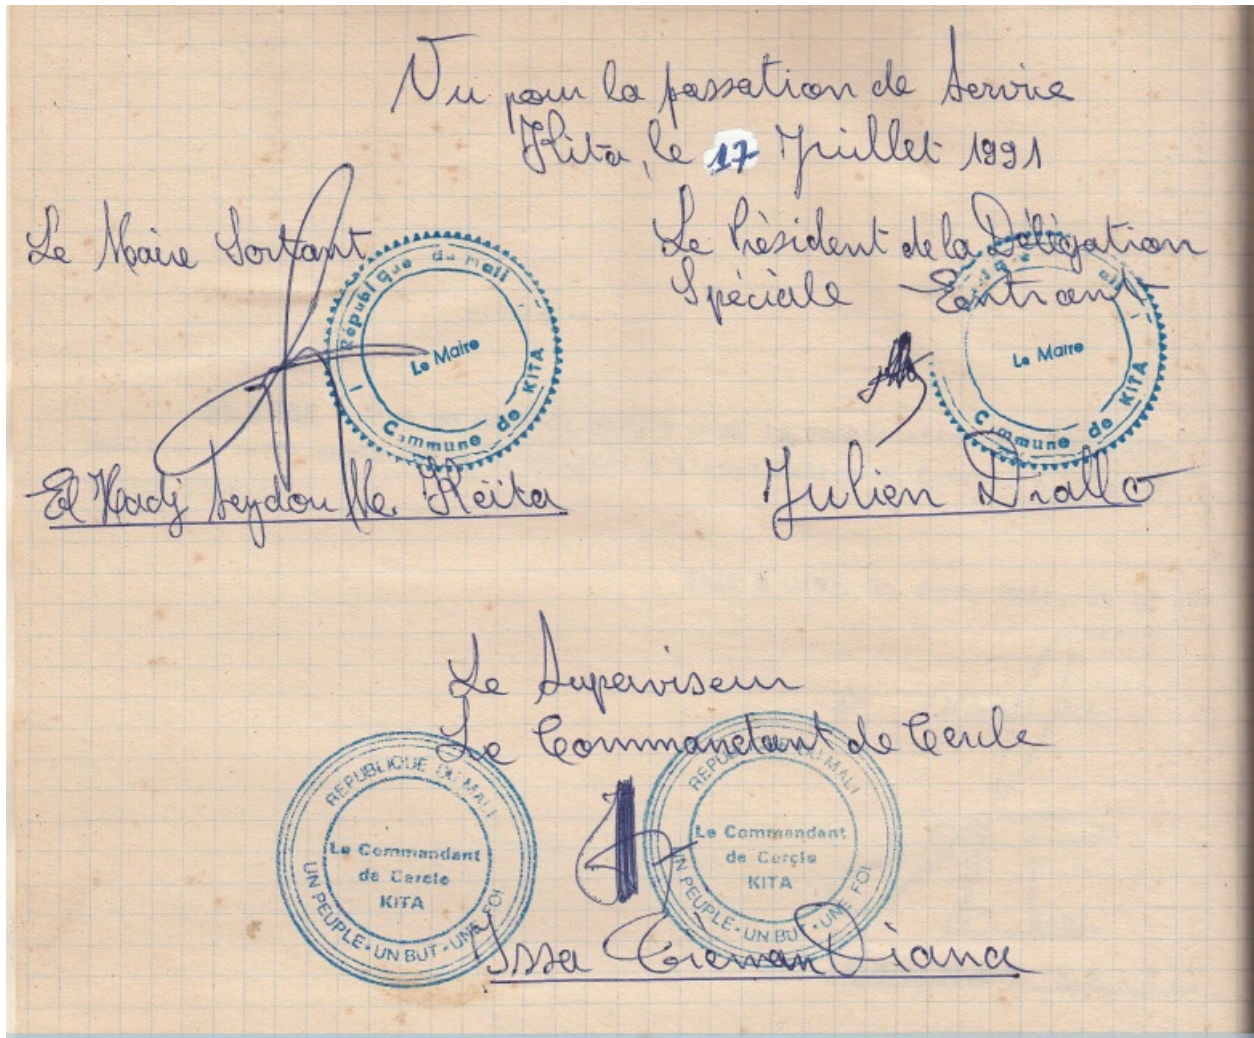 Vu pour la passation de Service
Kita, le 17 Juillet 1991
Le Maire Sortant
République du Mali
Le Maire
Commune de KITA
El Hadj Seydou Keïta
Le Président de la Délégation
Spéciale Entrant
Le Maire
Commune de KITA
Julien Diallo
Le Superviseur
Le Commandant de Cercle
REPUBLIQUE DU MALI
Le Commandant
de Cercle
KITA
UN PEUPLE - UN BUT - UNE FOI
REPUBLIQUE DU MALI
Le Commandant
de Cercle
KITA
UN PEUPLE - UN BUT - UNE FOI
Issa Diana